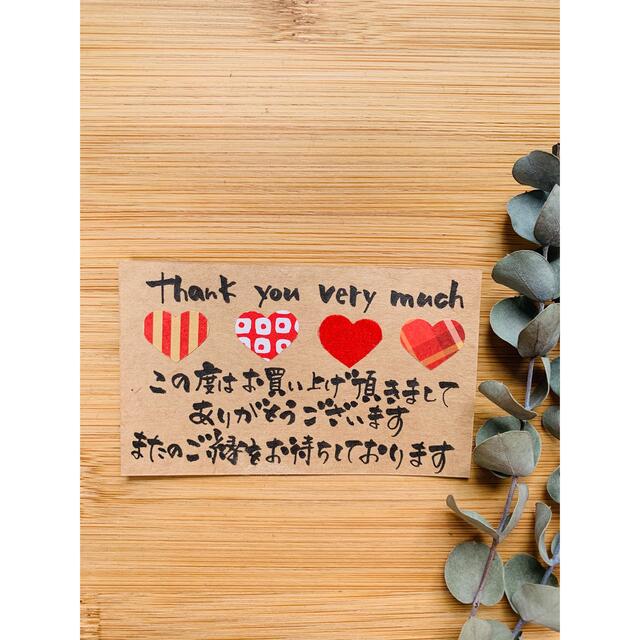 thank you very much
この度はお買い上げ頂きまして
ありがとうございます
またのご縁をお待ちしております